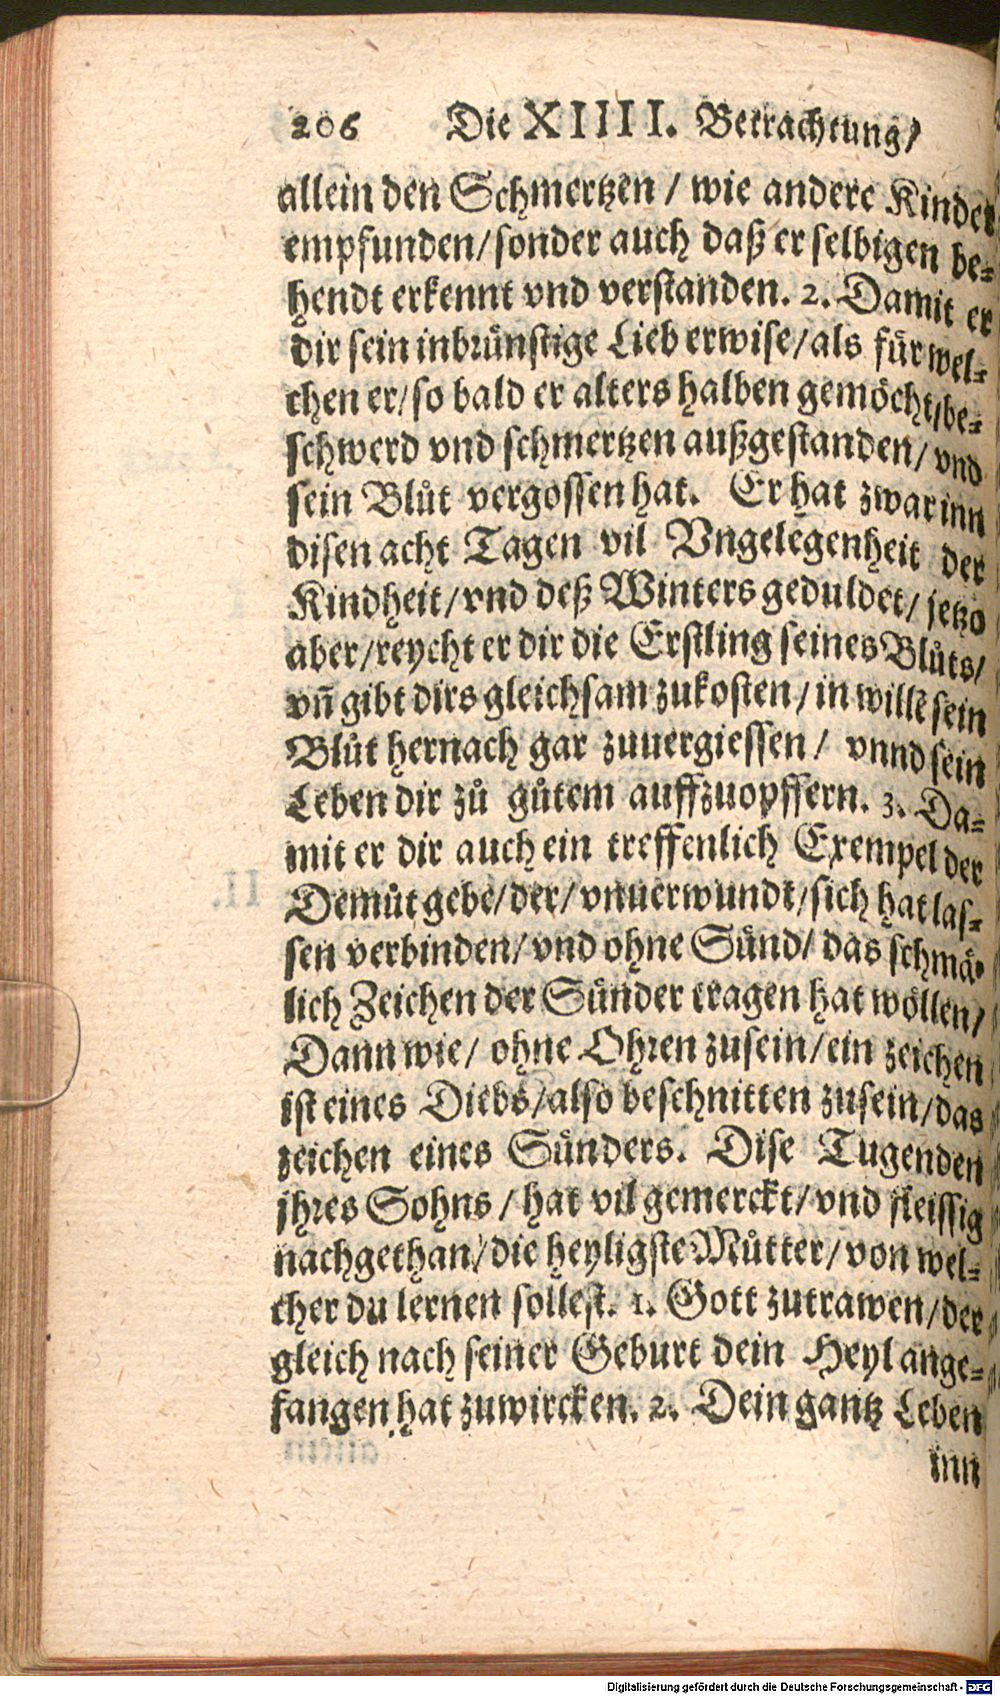 206 Die XIIII. Betrachtung/
allein den Schmertzen / wie andere Kinder
empfunden/ sonder auch daß er selbigen be-
hendt erkennt vnd verstanden. 2. Damit er
dir sein inbrünstige Lieb erwise/ als für wel-
chen er/ so bald er alters halben gemöcht/ be-
schwerd vnd schmertzen außgestanden/ vnd
sein Blůt vergossen hat. Er hat zwar inn
disen acht Tagen vil Vngelegenheit der
Kindheit/ vnd deß Winters geduldet/ jetzo
aber/ reycht er dir die Erstling seines Blůts/
vñ gibt dirs gleichsam zukosten/ in wille͂ sein
Blůt hernach gar zuuergiessen/ vnnd sein
Leben dir zů gůtem auffzuopffern. 3. Da-
mit er dir auch ein treffenlich Exempel der
Demůt gebe/ der/ vnuerwundt/ sich hat las-
sen verbinden/ vnd ohne Sünd/ das schmä-
lich Zeichen der Sünder tragen hat wöllen/
Dann wie/ ohne Ohren zusein/ ein zeichen
ist eines Diebs/ also beschnitten zusein/ das
zeichen eines Sünders. Dise Tugenden
jhres Sohns / hat vil gemerckt/ vnd fleissig
nachgethan/ die heyligste Můtter/ von wel-
cher du lernen sollest. 1. Gott zutrawen/ der
gleich nach seiner Geburt dein Heyl ange-
fangen hat zuwircken. 2. Dein gantz Leben
inn
Digitalisierung gefördert durch die Deutsche Forschungsgemeinschaft - DFG